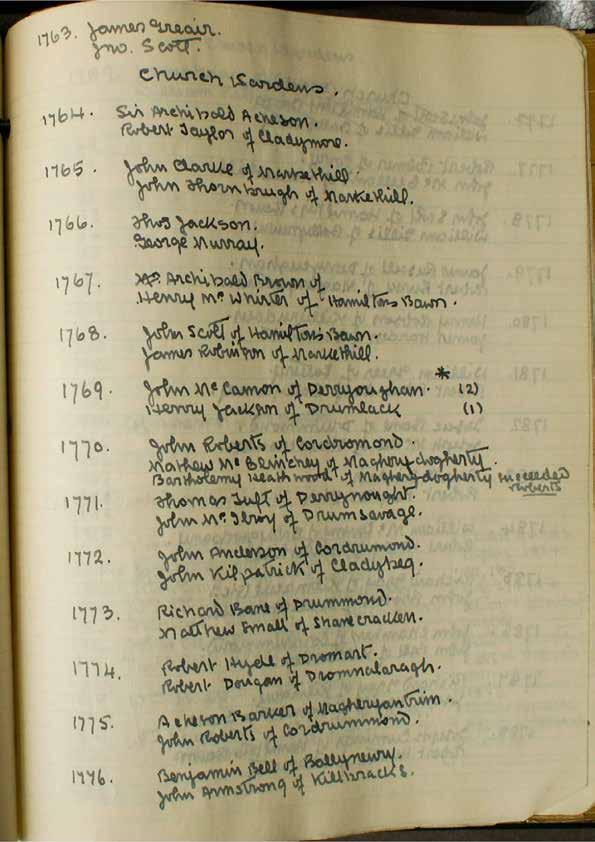 1763. James Greair.
Jno. Scott.
Church Wardens.
1764. Sir Archibald Acheson.
Robert Taylor of Cladymore.
1765. John Clarke of Markethill.
John Thornbrugh of Markethill.
1766. Thos Jackson.
George Murray.
1767. Archibald Brown of
Henry McWhirter of Hamilton's Bawn.
1768. John Scott of Hamilton's Bawn.
James Robinson of Markethill.
1769. John McCamon of Derryoughan. * (2)
Henry Jackson of Drumlack (1)
1770. John Roberts of Cordromond.
Mathew Mc of Magherydogherty.
Bartholemy Heathwood of Magherydogherty succeeded
Roberts
1771. Thomas Tuft of Derrynought.
John McIlroy of Drumsavage.
1772. John Anderson of Cordrumond.
John Kilpatrick of Cladybeg.
1773. Richard Bane of Drummond.
Matthew Small of Shanecracken.
1774. Robert Hyde of Dromart.
Robert Dougan of Dromnalaragh.
1775. Acheson Barker of Magheryantrim.
John Roberts of Cordrummond.
1776. Benjamin Bell of Ballynewry.
John Armstrong of Killbracks.